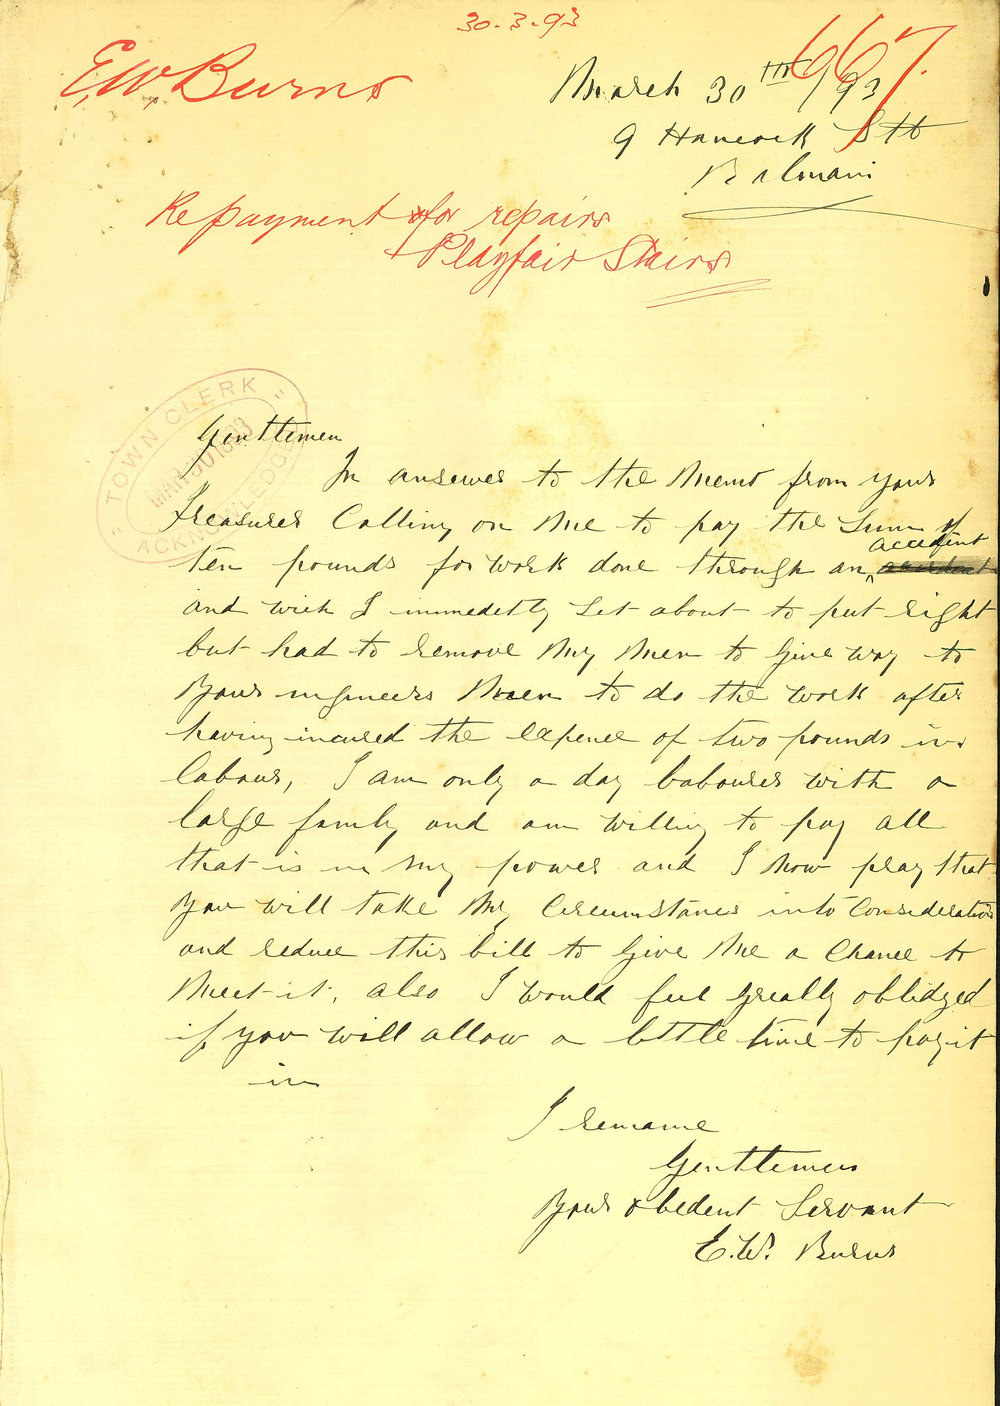 30.3.93
667.
E.W. Burns
March 30TH /93
9 Hancock Stt
Balmain
Repayment for repairs
Playfair Stairs
TOWN CLERK
MAR 30 1893
ACKNOWLEDGED
Gentlemen
In answer to the Memo from your
Treasurer Calling on Me to pay the Sum of
accedent
ten pounds for work done through an
and wich I immedetly Set about to put right
but had to remove My Men to Give way to
Your ingineers Men to do the work after
having incured the expence of two pounds in
labour, I am only a day labourer with a
large family and am willing to pay all
that is in My power and I Now pray that
You will take My Circumstances into Consideration
and reduce this bill to Give Me a Chance to
Meet it, also I would feel Greatly oblidged
if you will allow a little time to pay it
in
I remaine
Gentlemen
Your obedent Servant
E.W. Burns